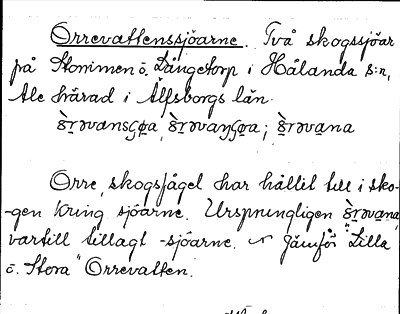 Orrevattenssjöarne. Två skogssjöar
på Stommen ö. Långetorp i Hålanda s:n,
Ale härad i Älfsborgs län.
Orre, skogsfågel har hållit till i sko-
-gen kring sjöarne. Ursprungligen
vartill tillagt -sjöarne. ~ Jämför "Lilla
ö. Stora" Orrevatten.